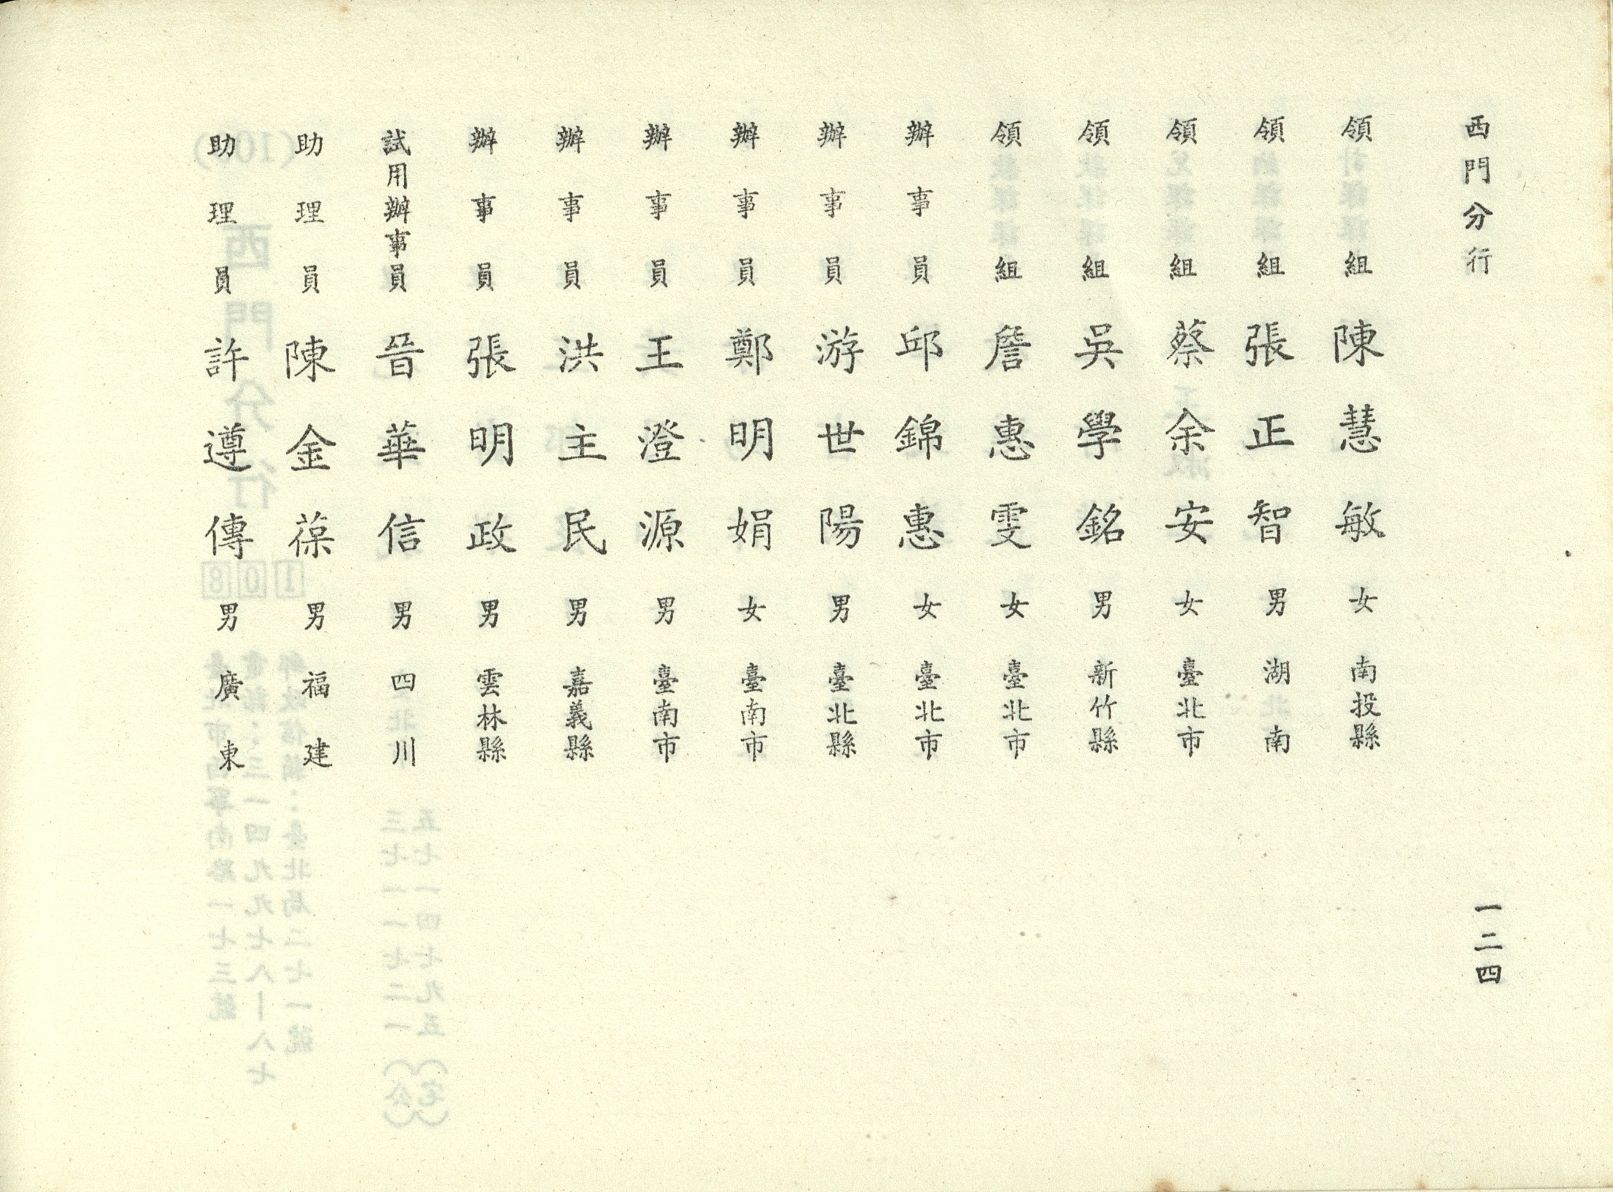 西門分行
領組 陳慧敏 女 南投縣
領組 張正智 男 湖南
領組 蔡余安 女 臺北市
領組 吳學銘 男 新竹縣
領組 詹惠雯 女 臺北市
辦事員 邱錦惠 女 臺北市
辦事員 游世陽 男 臺北縣
辦事員 鄭明娟 女 臺南市
辦事員 王澄源 男 臺南市
辦事員 洪主民 男 嘉義縣
辦事員 張明政 男 雲林縣
試用辦事員 晉華信 男 四川
助理員 陳金葆 男 福建
助理員 許遵傳 男 廣東
一二四